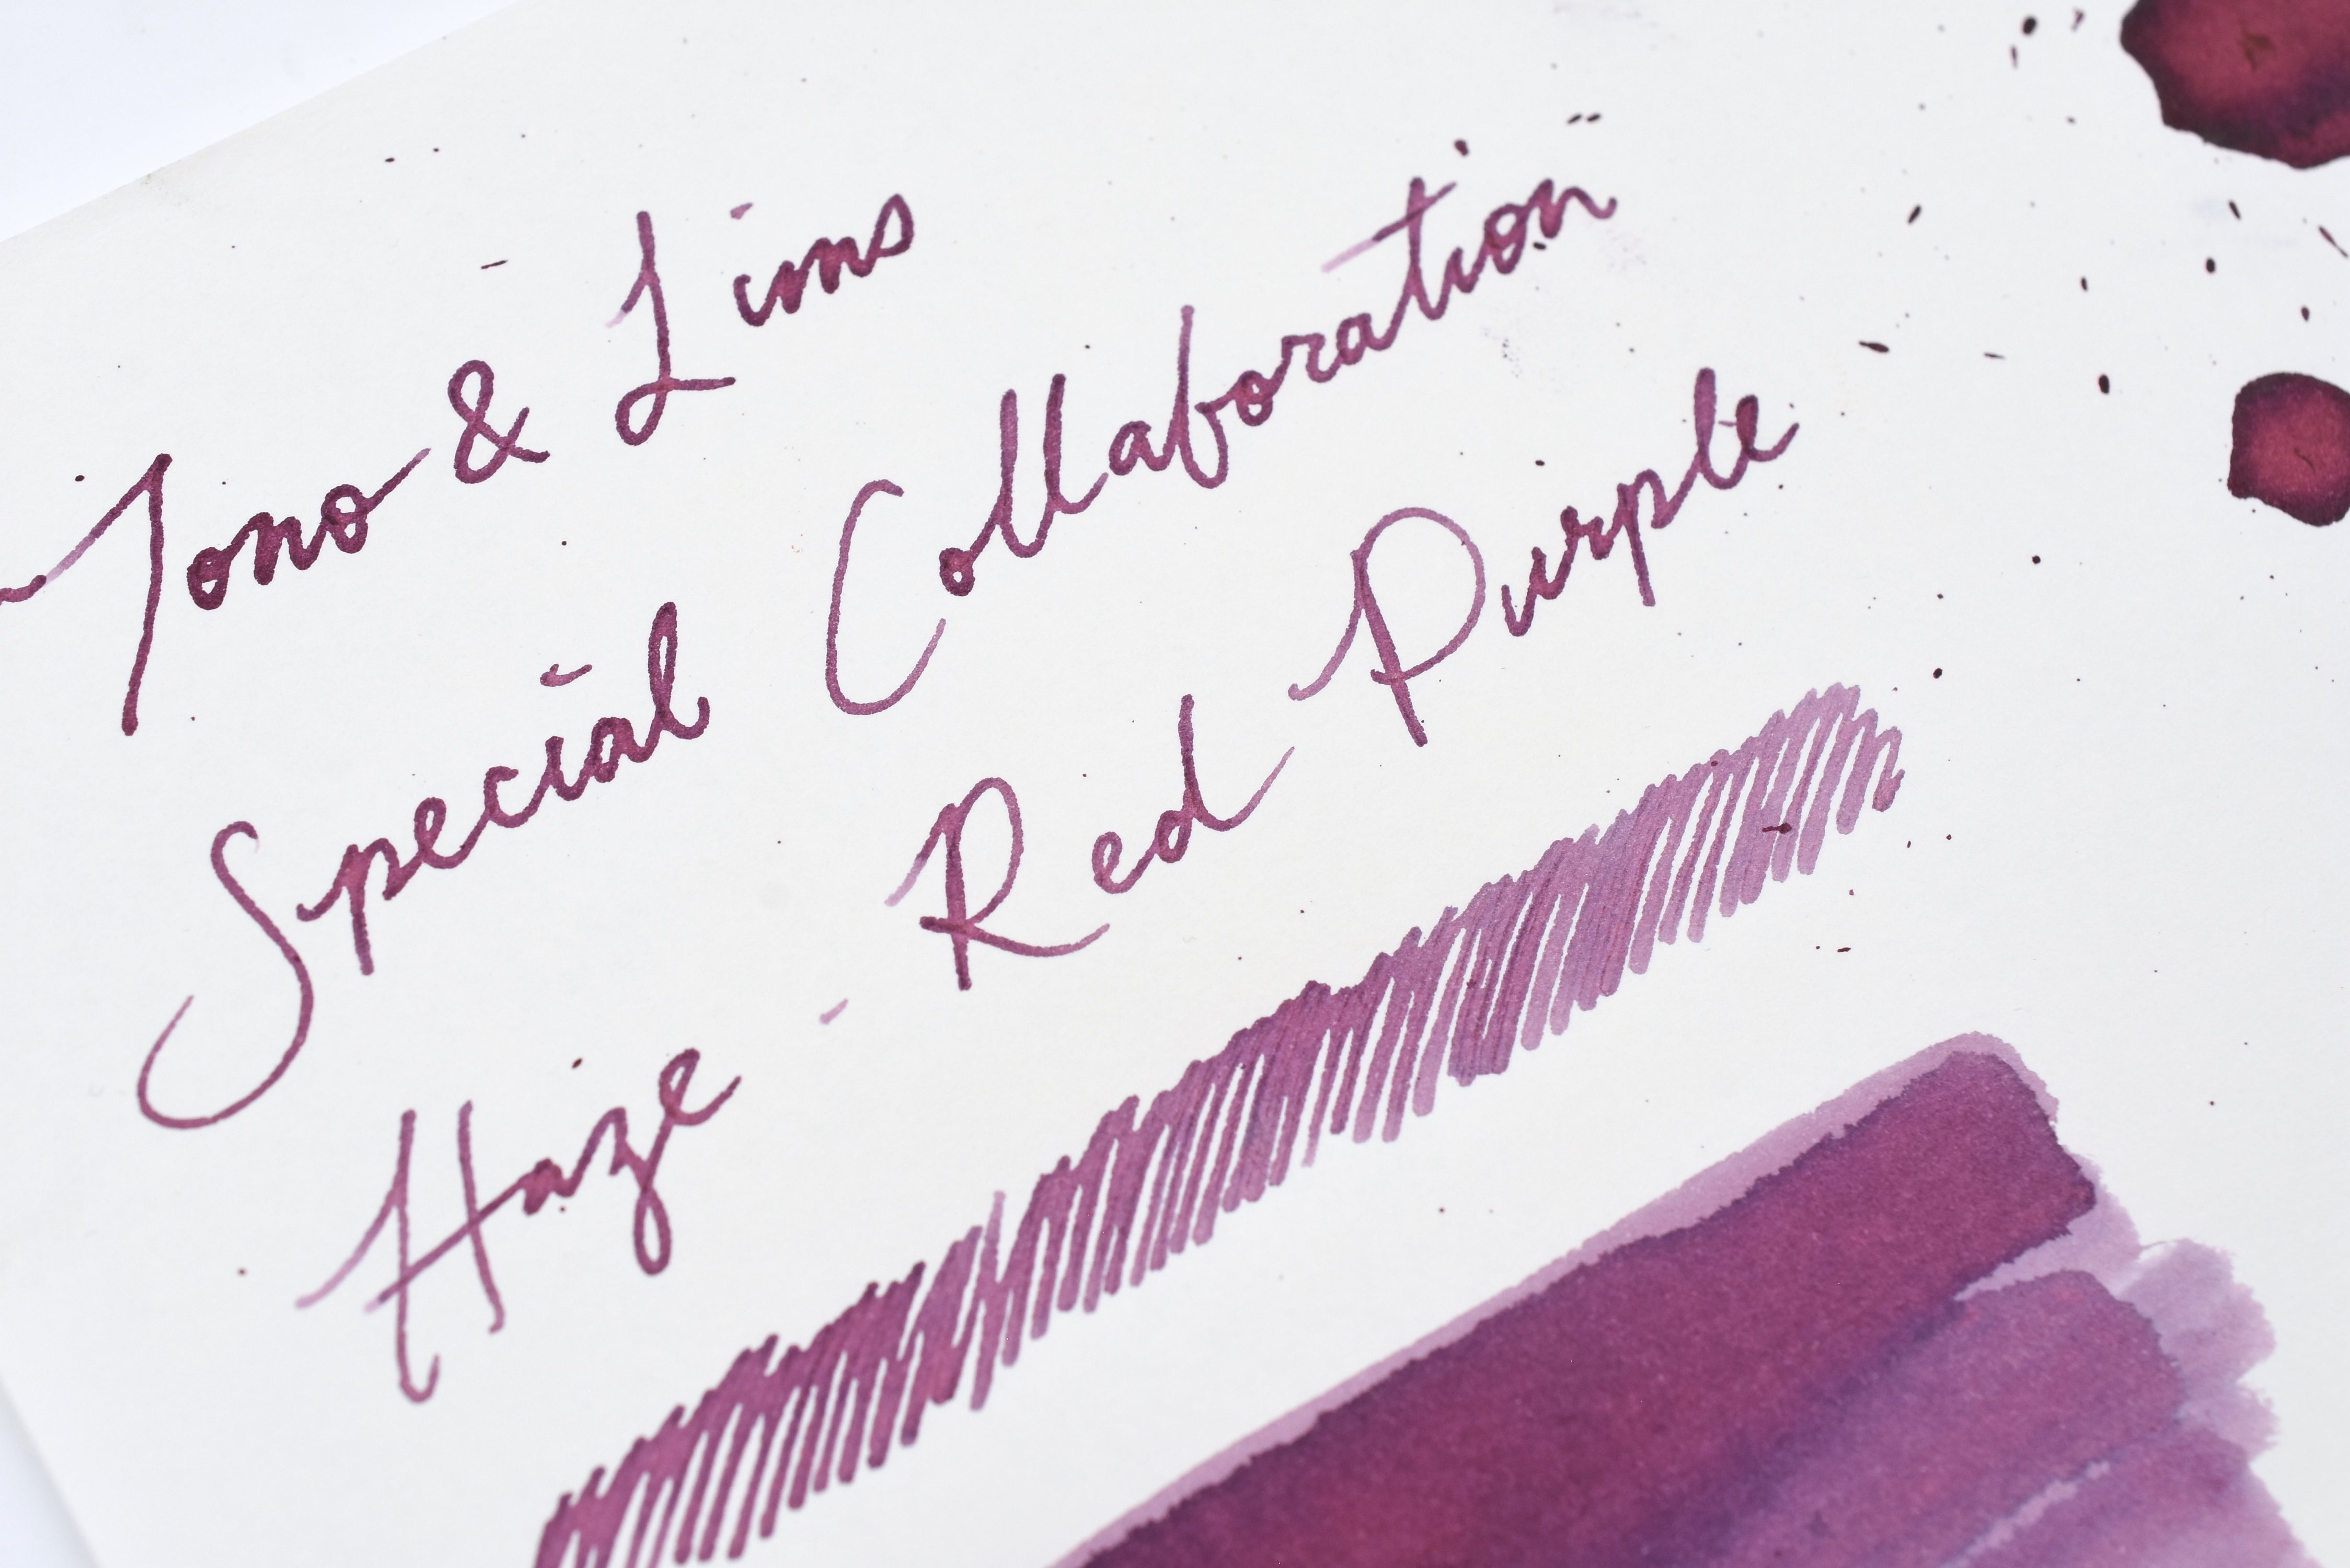 Tono & Lims
Special Collaboration
Haze - Red Purple